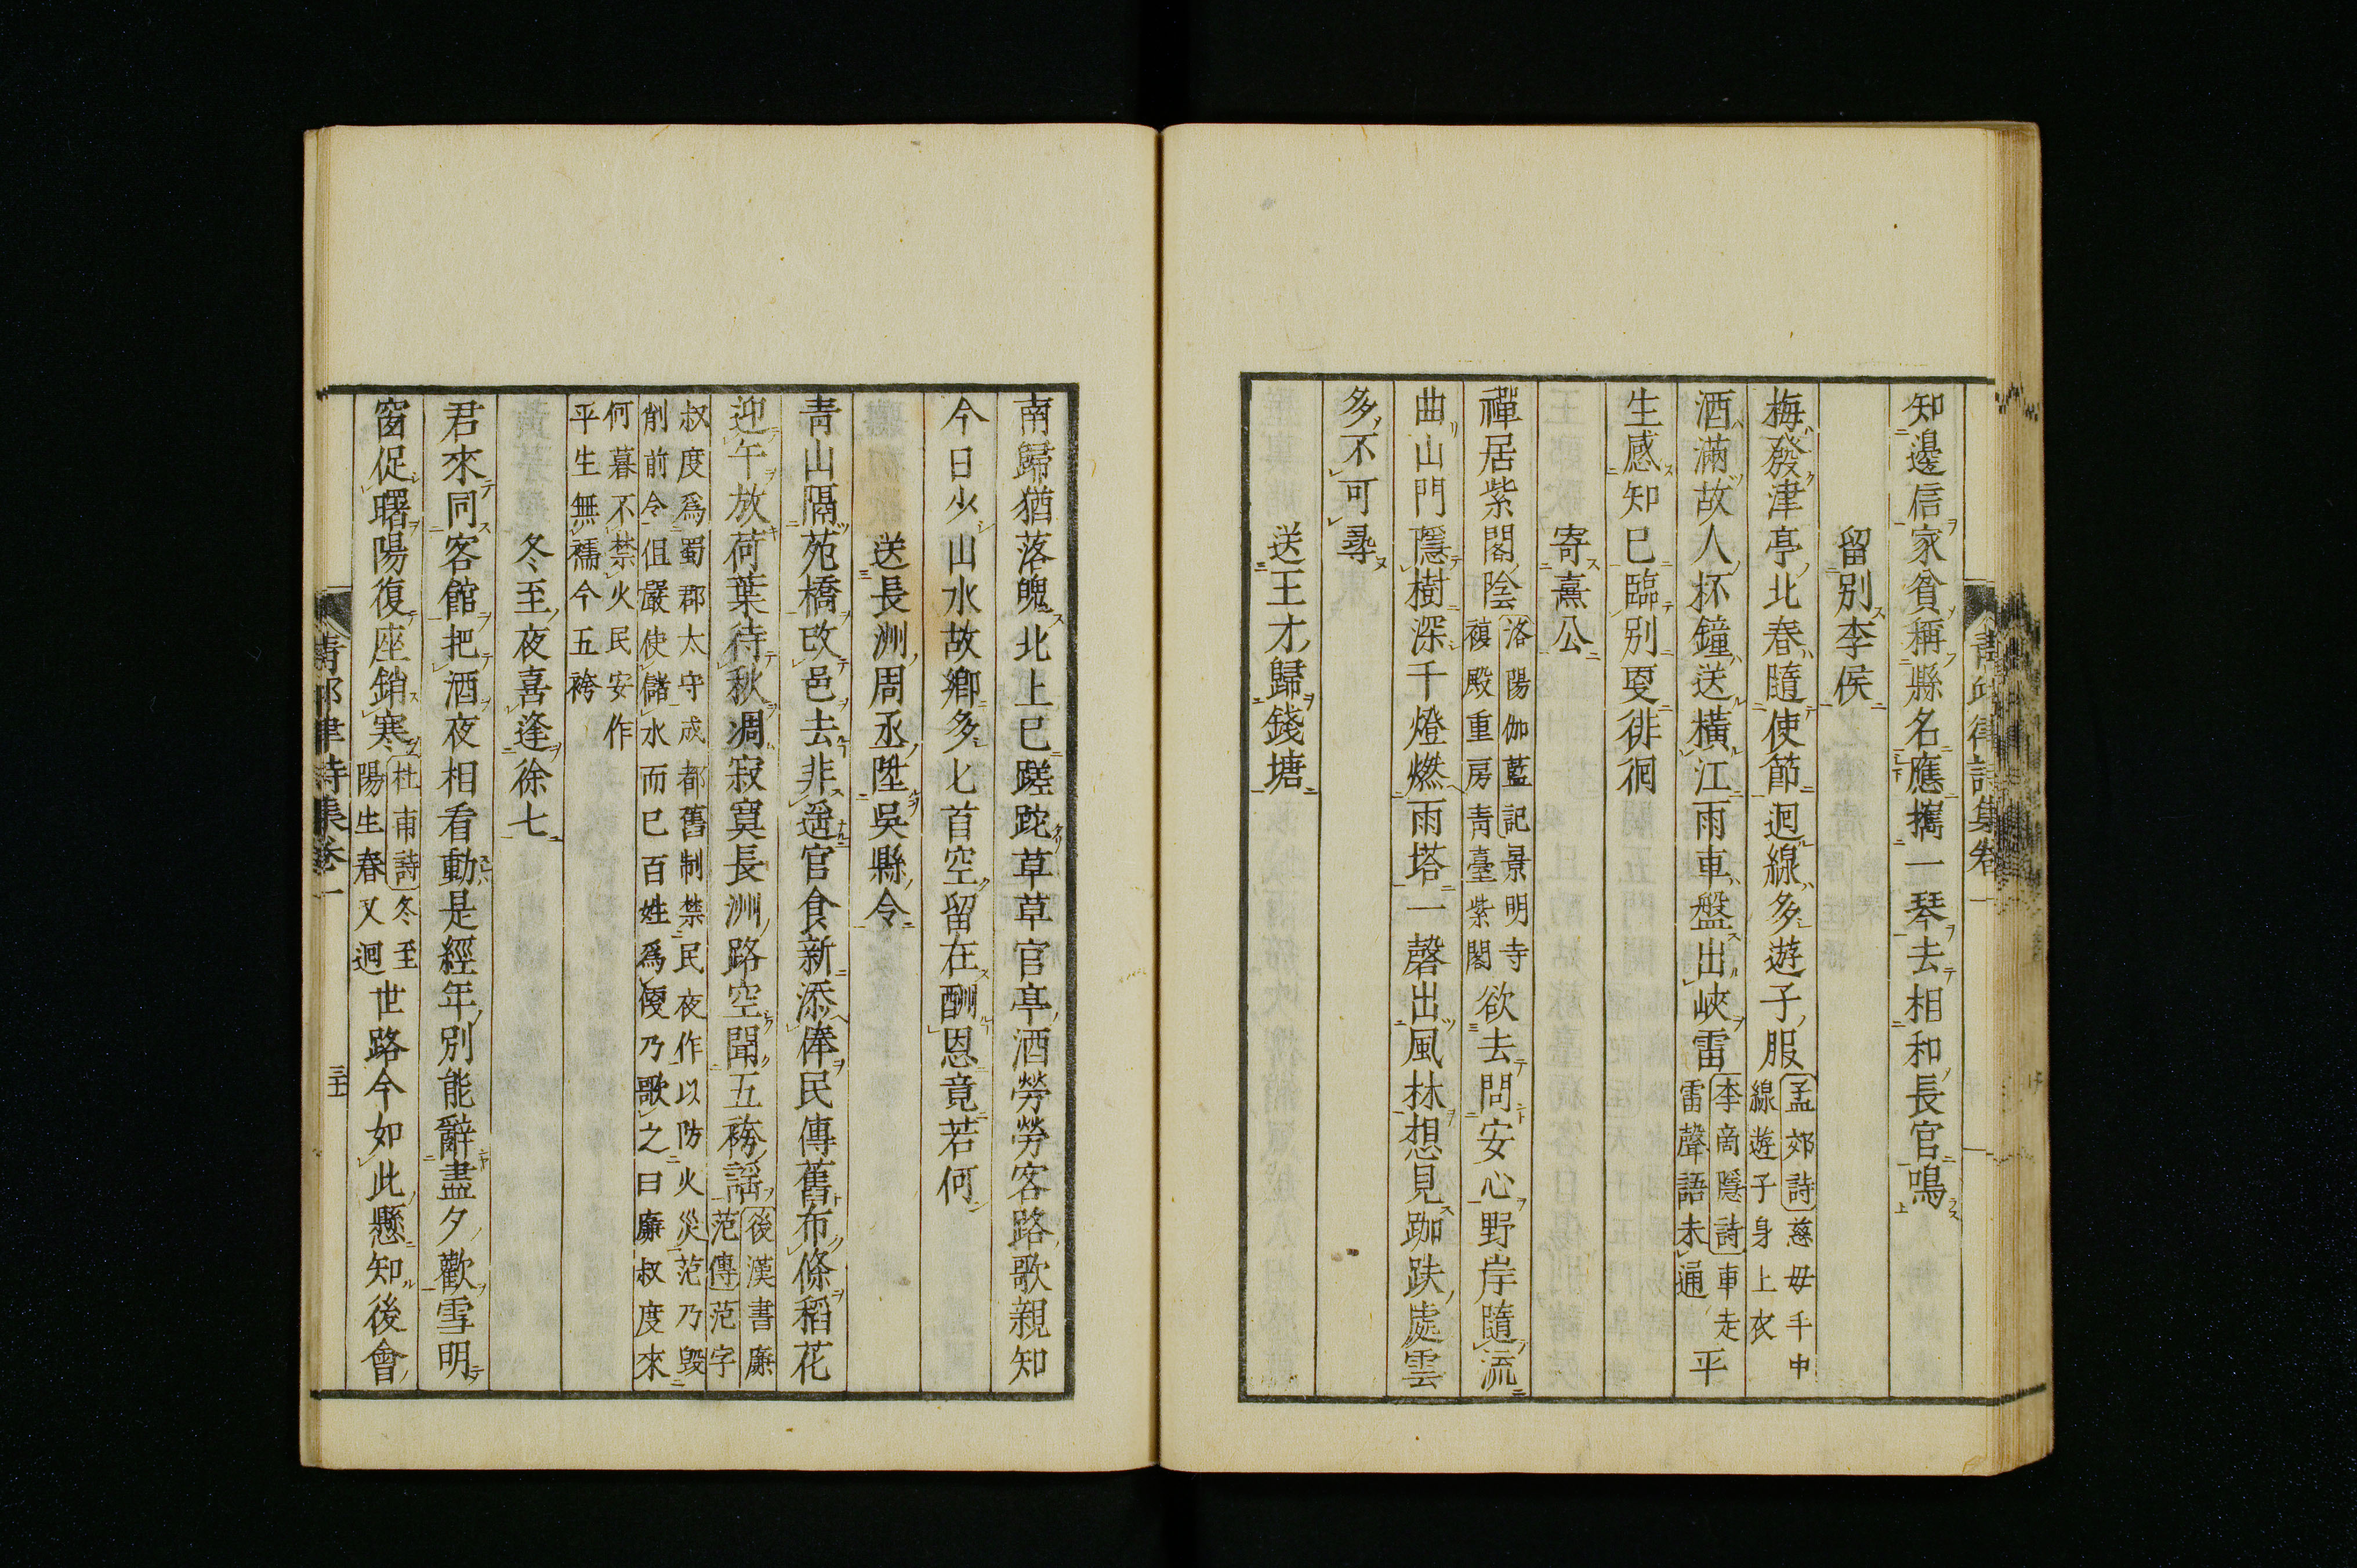 知邊信家貧稱縣名應攜一琴去相和長官鳴
留別李侯
梅發津亭北春隨使節迴線多遊子服孟郊詩慈母手中線遊子身上衣
酒滿故人杯鐘送橫江雨車盤出峽雷李商隱詩車走雷聲語未通平
生感知巳臨別更徘徊
寄熹公
禪居紫閣陰洛陽伽藍記景明寺複殿重房青臺紫閣欲去問安心野岸隨流
曲山門隱樹深千燈燃雨塔一磬出風林想見跏趺處雲
多不可尋
送王才歸錢塘
南歸猶落魄北上巳蹉跎草草官亭酒勞勞客路歌親知
今日少山水故鄉多匕首空留在酬恩竟若何
送長洲周丞陞吳縣令
青山隔苑橋改邑去非遥官食新添俸民傳舊布條稻花
迎午放荷葉待秋凋寂寞長洲路空聞五袴謡後漢書廉范傳范字
叔度爲蜀郡太守成都舊制禁民夜作以防火災范乃毀
削前令但嚴使儲水而巳百姓爲便乃歌之曰廉叔度來
何暮不禁火民安作
平生無襦今五袴
冬至夜喜逢徐七
君來同客館把酒夜相看動是經年別能辭盡夕歡雪明
窗促曙陽復座銷寒杜甫詩冬至陽生春又迴世路今如此懸知後會
青邱律詩集卷一